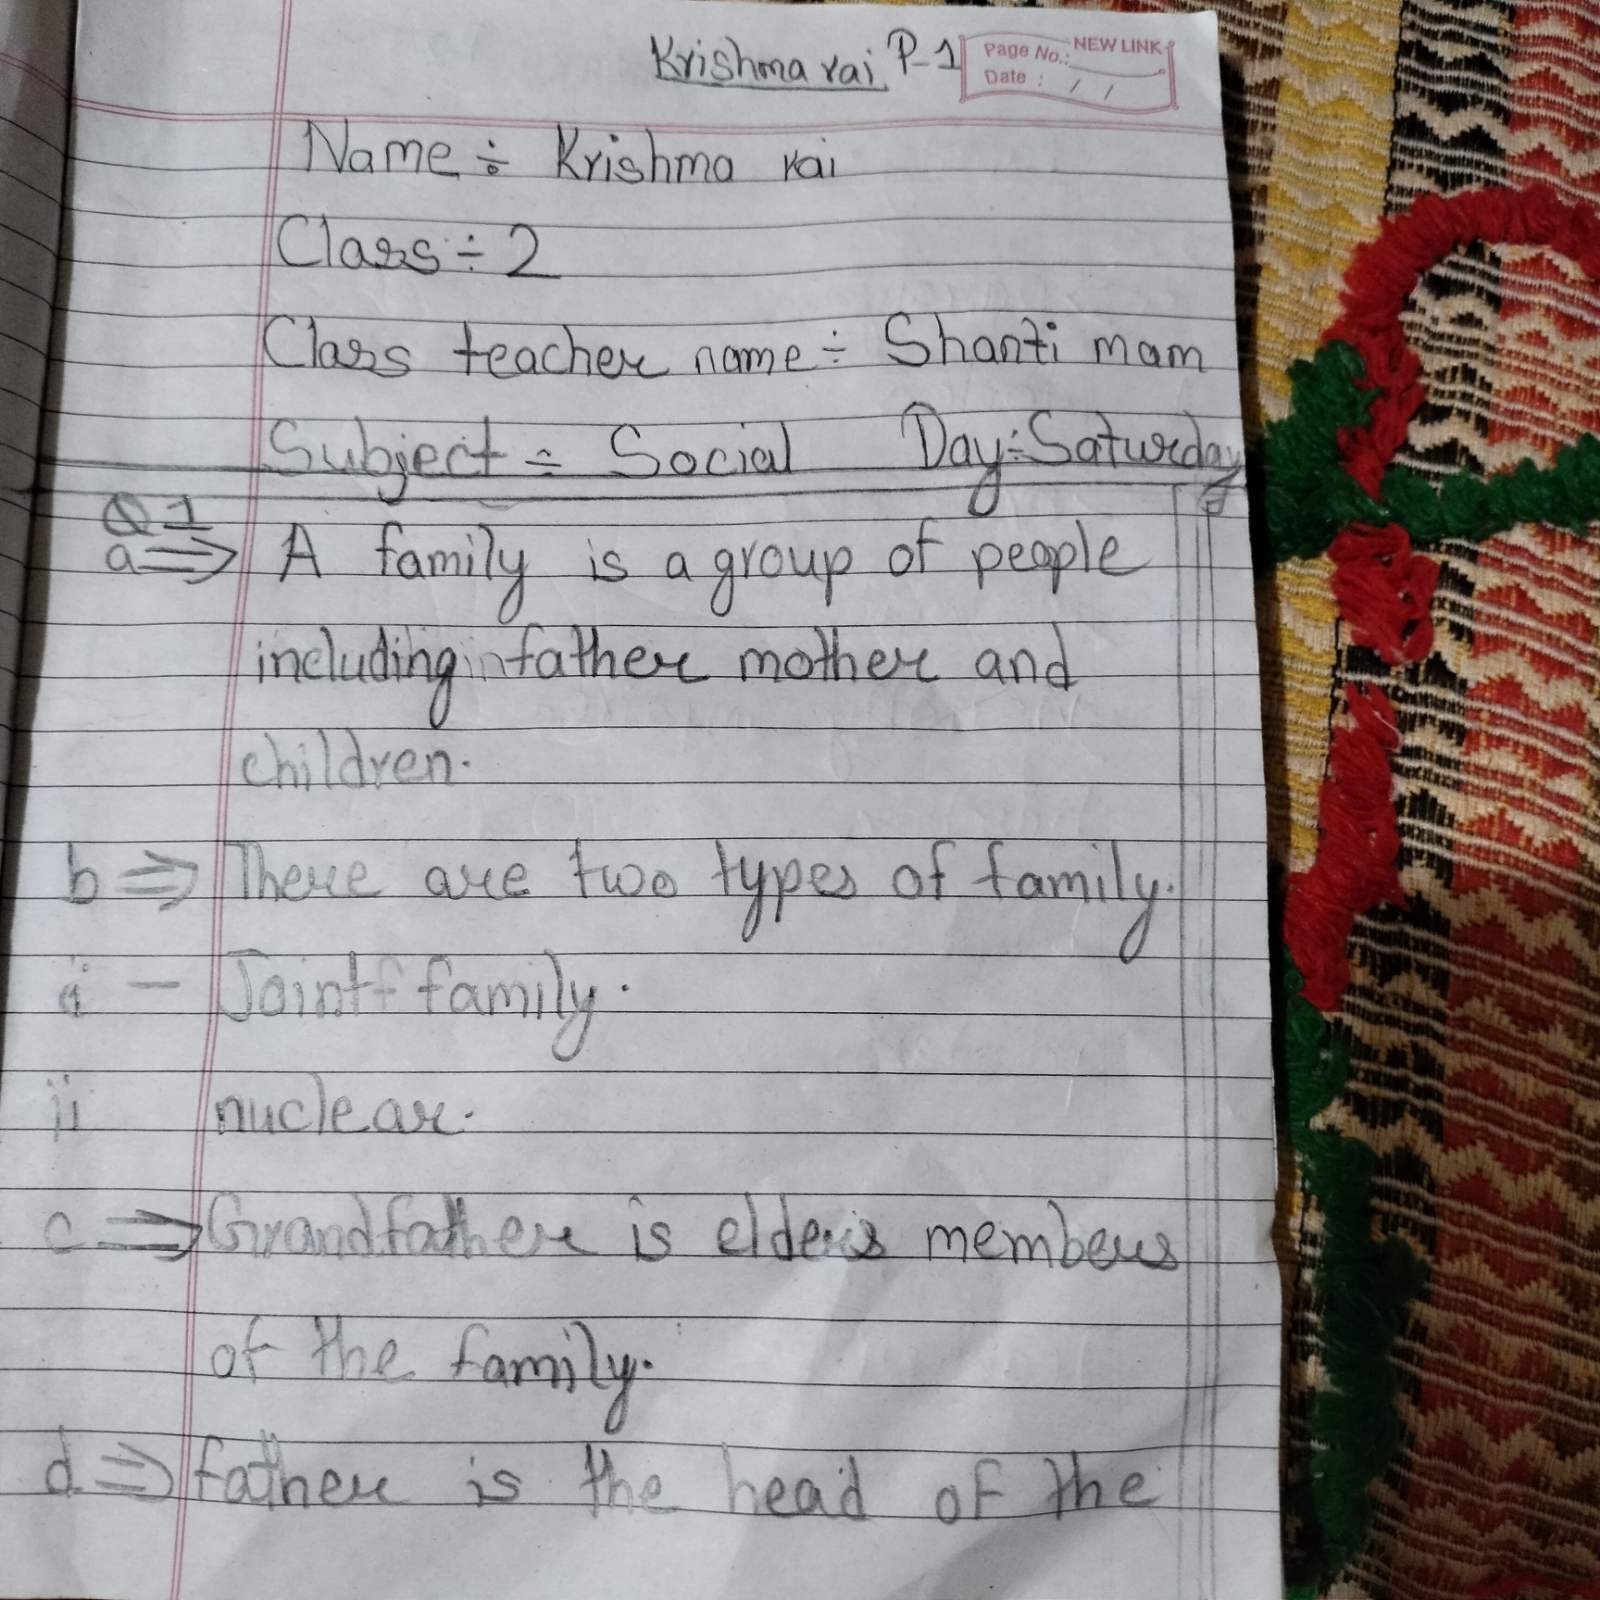 Krishma rai P-1
Page No.: NEW LINK
Date : / /
Name ÷ Krishma rai
Class ÷ 2
Class teacher name ÷ Shanti mam
Subject ÷ Social Day ÷ Saturday
Q1
a ⇒ A family is a group of people
including father mother and
children.
b ⇒ There are two types of family.
i - Joint family.
ii nuclear.
c ⇒ Grandfather is elders members
of the family.
d ⇒ father is the head of the